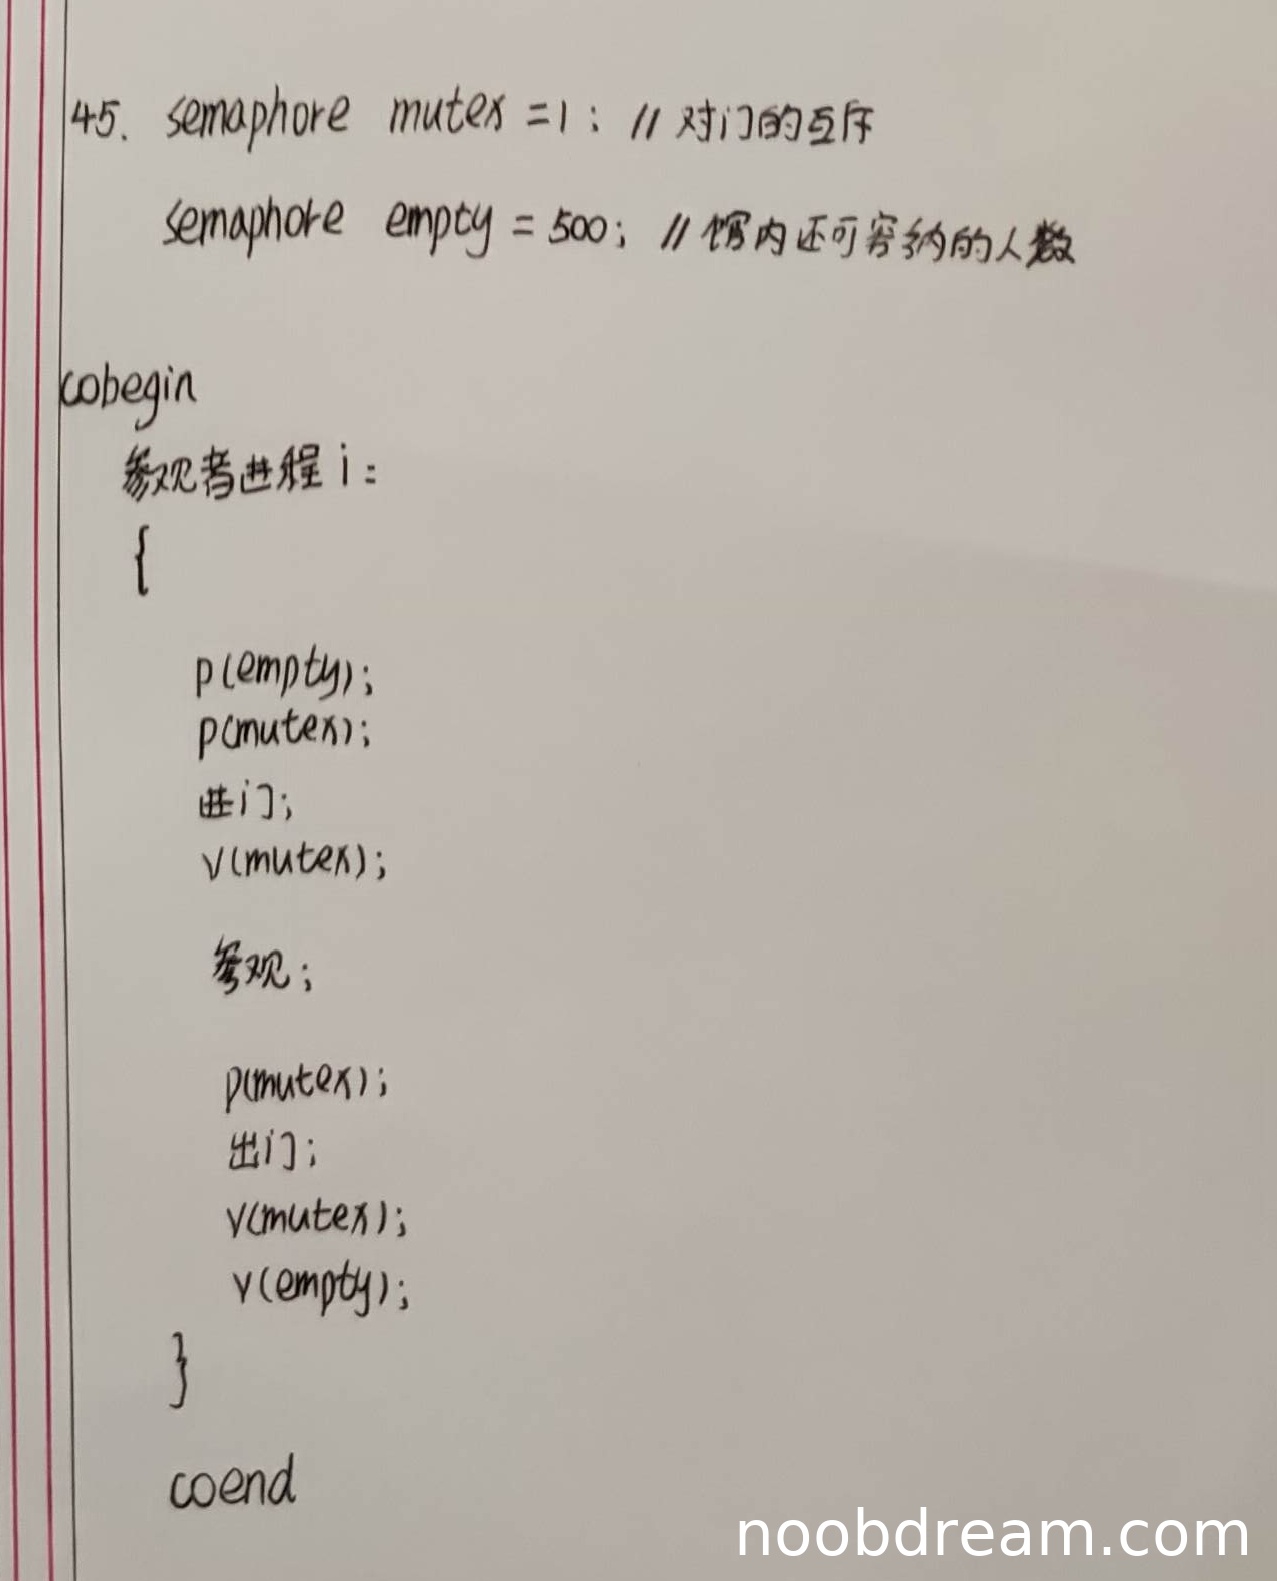 45. semaphore mutex =1; // 对门的互斥
semaphore empty = 500; // 馆内还可容纳的人数
cobegin
参观者进程 i:
{
p(empty);
p(mutex);
进门;
v(mutex);
参观;
p(mutex);
出门;
v(mutex);
v(empty);
}
coend
noobdream.com